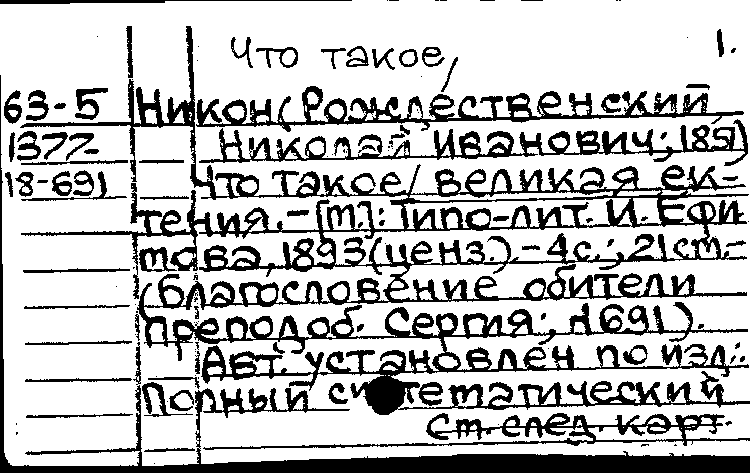 Что такое,
1.
63-5 Никон (Рождественский,
1377- Николай Иванович; 1851)
18-691 Что такое/ великая ек-
тения. - [М.]: Типо-лит. И. Ефи
мова, 1893 (ценз.). - 4с.; 21см. -
(Благословение обители
преподоб. Сергия; №691).
Авт. установлен по изд.:
Полный систематический
См. след. карт.